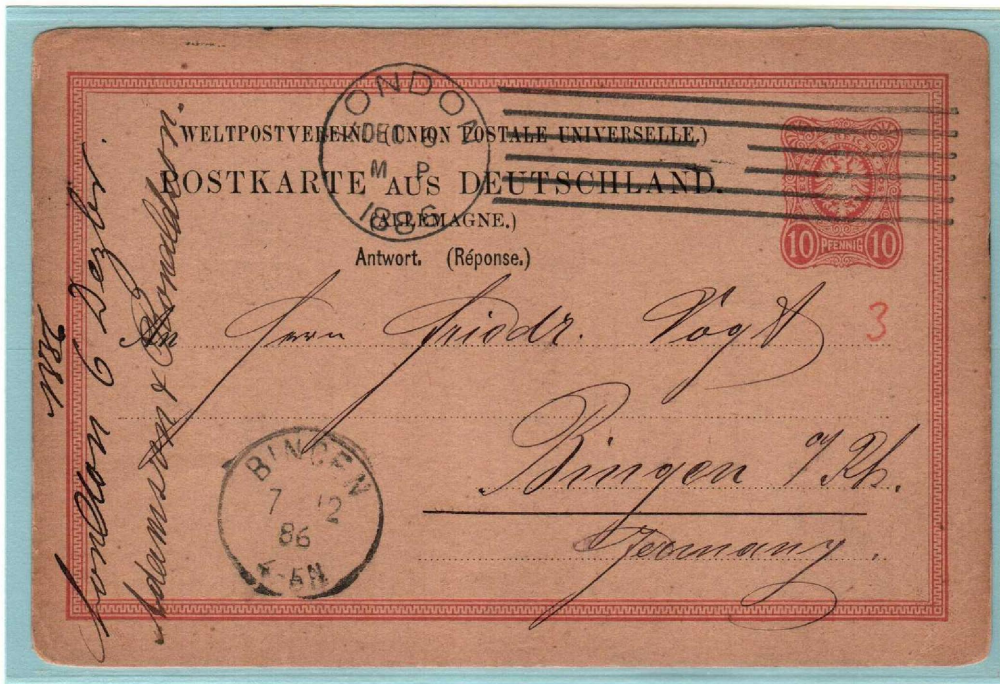 WELTPOSTVEREIN. (UNION POSTALE UNIVERSELLE.)
POSTKARTE AUS DEUTSCHLAND.
(ALLEMAGNE.)
Antwort. (Réponse.)
LONDON
DEC 6
M P
1886
10 PFENNIG 10
3
An Herrn Friedr. Vogt
Bingen a/Rh.
Germany.
BINGEN
7 12
86
London 6 Dezbr.
1886
Adamson & Ronaldson.